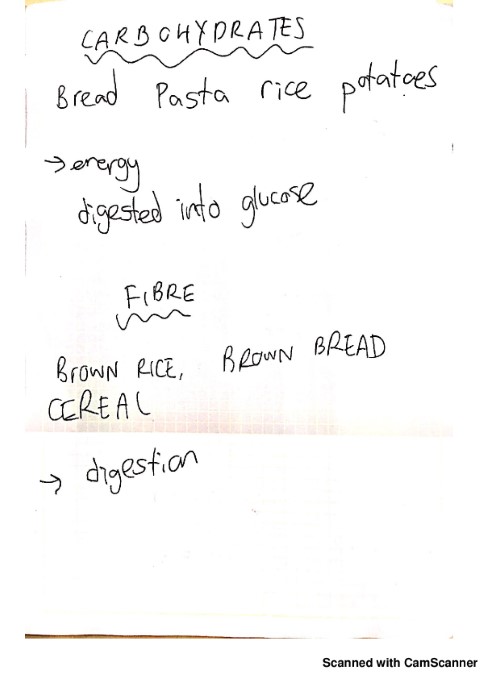 CARBOHYDRATES
Bread Pasta rice potatoes
→ energy
digested into glucose
FIBRE
BROWN RICE, BROWN BREAD
CEREAL
→ digestion
Scanned with CamScanner